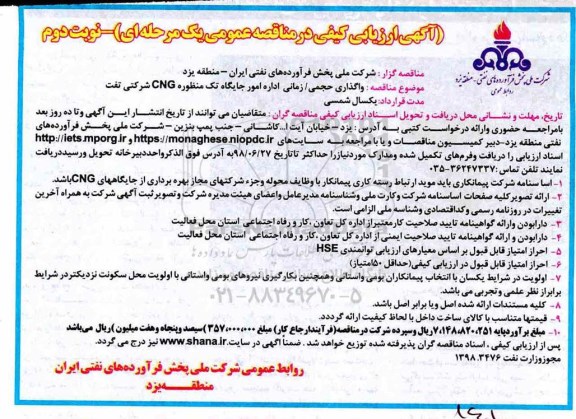 (آگهی ارزیابی کیفی در مناقصه عمومی یک مرحله ای) – نوبت دوم
شرکت ملی پخش فرآورده‌های نفتی - منطقه یزد
روابط عمومی
مناقصه گزار : شرکت ملی پخش فرآورده‌های نفتی ایران – منطقه یزد
موضوع مناقصه : واگذاری حجمی/ زمانی اداره امور جایگاه تک منظوره CNG شرکتی تفت
مدت قرارداد: یکسال شمسی
تاریخ، مهلت و نشانی محل دریافت و تحویل اسناد ارزیابی کیفی مناقصه گران : متقاضیان می توانند از تاریخ انتشار این آگهی و تا ده روز بعد
بامراجعه حضوری وارائه درخواست کتبی به آدرس: یزد – خیابان آیت ا... کاشانی – جنب پمپ بنزین – شرکت ملی پخش فرآورده‌های
نفتی منطقه یزد-دبیر کمیسیون مناقصات و یا با مراجعه به سایت‌های https://monaghese.niopdc.ir و http://iets.mporg.ir
اسناد ارزیابی را دریافت وفرم‌های تکمیل شده ومدارک موردنیاز را حداکثر تا تاریخ ۹۸/۰۶/۲۷ به آدرس فوق الذکر واحد دبیرخانه تحویل ورسید دریافت
نمایند تلفن تماس: ۳۶۲۴۷۳۳۷-۰۳۵
۱- اساسنامه شرکت پیمانکاری باید موید ارتباط رسته کاری پیمانکار با وظایف محوله وجزء شرکتهای مجاز بهره برداری از جایگاههای CNG باشد.
۲- ارائه تصویر کلیه صفحات اساسنامه شرکت وکارت ملی وشناسنامه مدیرعامل واعضای هیئت مدیره شرکت وتصویر ثبت آگهی شرکت به همراه آخرین
تغییرات در روزنامه رسمی وکد اقتصادی وشناسه ملی الزامی است.
۳- دارا بودن وارائه گواهینامه تایید صلاحیت کار معتبر از اداره کل تعاون ،کار و رفاه اجتماعی استان محل فعالیت
۴- دارا بودن و ارائه گواهینامه تایید صلاحیت ایمنی از اداره کل تعاون ،کار و رفاه اجتماعی استان محل فعالیت
۵- احراز امتیاز قابل قبول بر اساس معیارهای ارزیابی توانمندی HSE
۶- احراز امتیاز قابل قبول در ارزیابی کیفی (حداقل ۵۰ امتیاز)
۷- اولویت در شرایط یکسان با انتخاب پیمانکاران بومی واستانی وهمچنین بکارگیری نیروهای بومی واستانی با اولویت محل سکونت نزدیکتر در شرایط
برابر از نظر علمی وتجربی می باشد.
۸- کلیه مستندات ارائه شده اصل ویا برابر اصل باشد.
۹- قیمتها متناسب با کالای ساخت داخل با لحاظ کیفیت ارائه گرددد.
۱۰- مبلغ برآورد پایه ۷،۱۴۸،۸۲۰،۲۵۱ ریال وسپرده شرکت در مناقصه (فرآیند ارجاع کار) مبلغ ۳۵۷،۰۰۰،۰۰۰ (سیصد وپنجاه وهفت میلیون) ریال می‌باشد
پس از ارزیابی کیفی ، اسناد مناقصه گران پذیرفته شده توزیع خواهد شد. ضمنا آگهی در سایت www.shana.ir نیز درج می گردد.
مجوز وزارت نفت ۱۳۹۸.۳۴۷۶
روابط عمومی شرکت ملی پخش فرآورده‌های نفتی ایران
منطقه یزد
۰۲۱-۸۸۳۴۹۶۷۰-۵